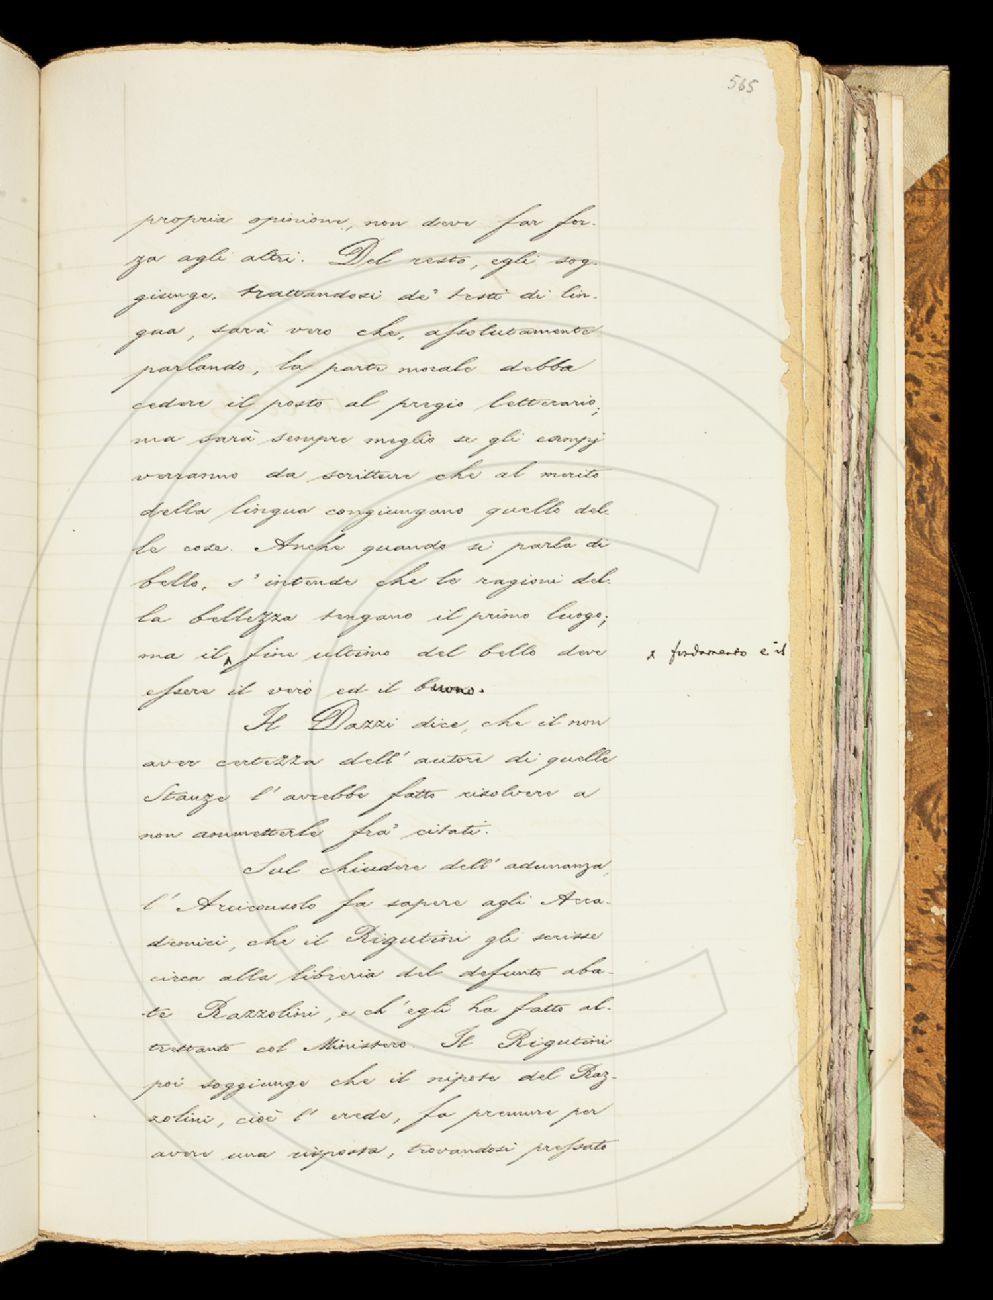 565
propria opinione, non deve far for-
za agli altri. Del resto, egli sog-
giunge, trattandosi de' testi di lin-
gua, sarà vero che, assolutamente
parlando, la parte morale debba
cedere il posto al pregio letterario;
ma sarà sempre meglio se gli esempj
verranno da scritture che al merito
della lingua congiungano quello del-
le cose. Anche quando si parla di
bello, s'intende che le ragioni del-
la bellezza tengano il primo luogo;
ma il fine ultimo del bello deve
x fondamento e il
essere il vero ed il buono.
Il Dazzi dice, che il non
aver certezza dell'autore di quelle
Stanze l'avrebbe fatto risolvere a
non ammetterle fra' citati.
Sul chiudere dell'adunanza,
l'Arciconsolo fa sapere agli Acca-
demici, che il Rigutini gli scrisse
circa alla libreria del defunto aba-
te Razzolini, e ch'egli ha fatto al-
trettanto col Ministero. Il Rigutini
poi soggiunge che il nipote del Raz-
zolini, cioè l'erede, fa premure per
avere una risposta, trovandosi pressato